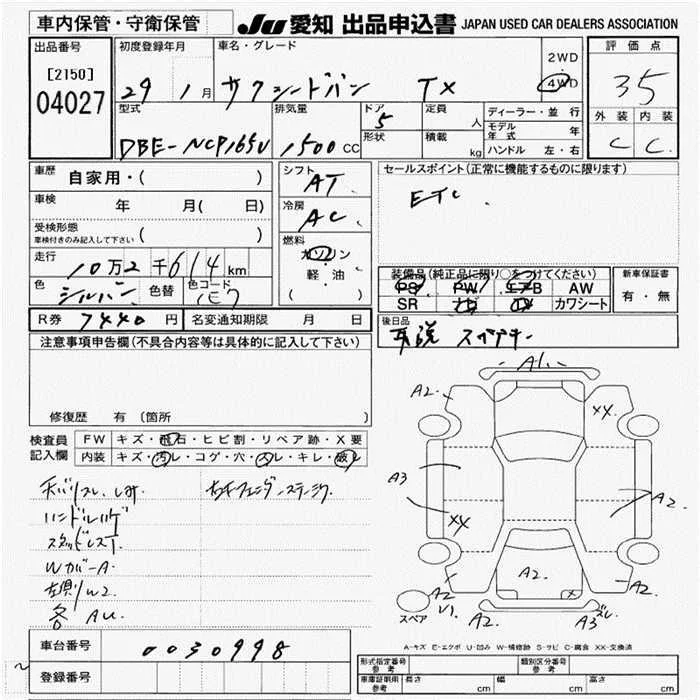 車内保管・守衛保管
JU 愛知 出品申込書 JAPAN USED CAR DEALERS ASSOCIATION
出品番号
[2150]
04027
初度登録年月
29 1月
車名・グレード
サクシードバン TX
2WD
4WD
評価点
35
外装 内装
C C
型式
DBE-NCP165V
排気量
1500 CC
ドア
5
形状
定員
人
積載
kg
ディーラー・並行
モデル年式 年
ハンドル 左・右
車歴
自家用・( )
車検 年 月( 日)
受検形態
車検付きのみ記入して下さい ( )
走行
10万2千614 km
色
シルバー
色替
色コード
1E7
シフト
AT
冷房
AC
燃料
ガソリン
軽・油
( )
セールスポイント(正常に機能するものに限ります)
ETC
装備品(純正品に限り○をつけてください)
PS PW エアB AW
SR カワシート
新車保証書
有・無
R券 7440 円
名変通知期限 月 日
後日品
取説 スペアキー
注意事項申告欄(不具合内容等は具体的に記入して下さい)
修復歴 有 (箇所 )
検査員記入欄
FW キズ・飛石・ヒビ割・リペア跡・X要
内装 キズ・汚レ・コゲ・穴・スレ・キレ・破レ
ハンドルハゲ
Wカバー A.
左側 W2
各 AU.
A1
A2.
XX.
A3
XX
A2.
A2.
A2
V1.
A2.
A2.
A3 ズレ.
スペア
A-キズ E-エクボ U-凹み W-補修跡 S-サビ C-腐食 XX-交換済
車台番号
0030998
登録番号
形式指定番号 参考
類別区分番号 参考
車庫証明用 参考
長さ cm
幅 cm
高さ cm